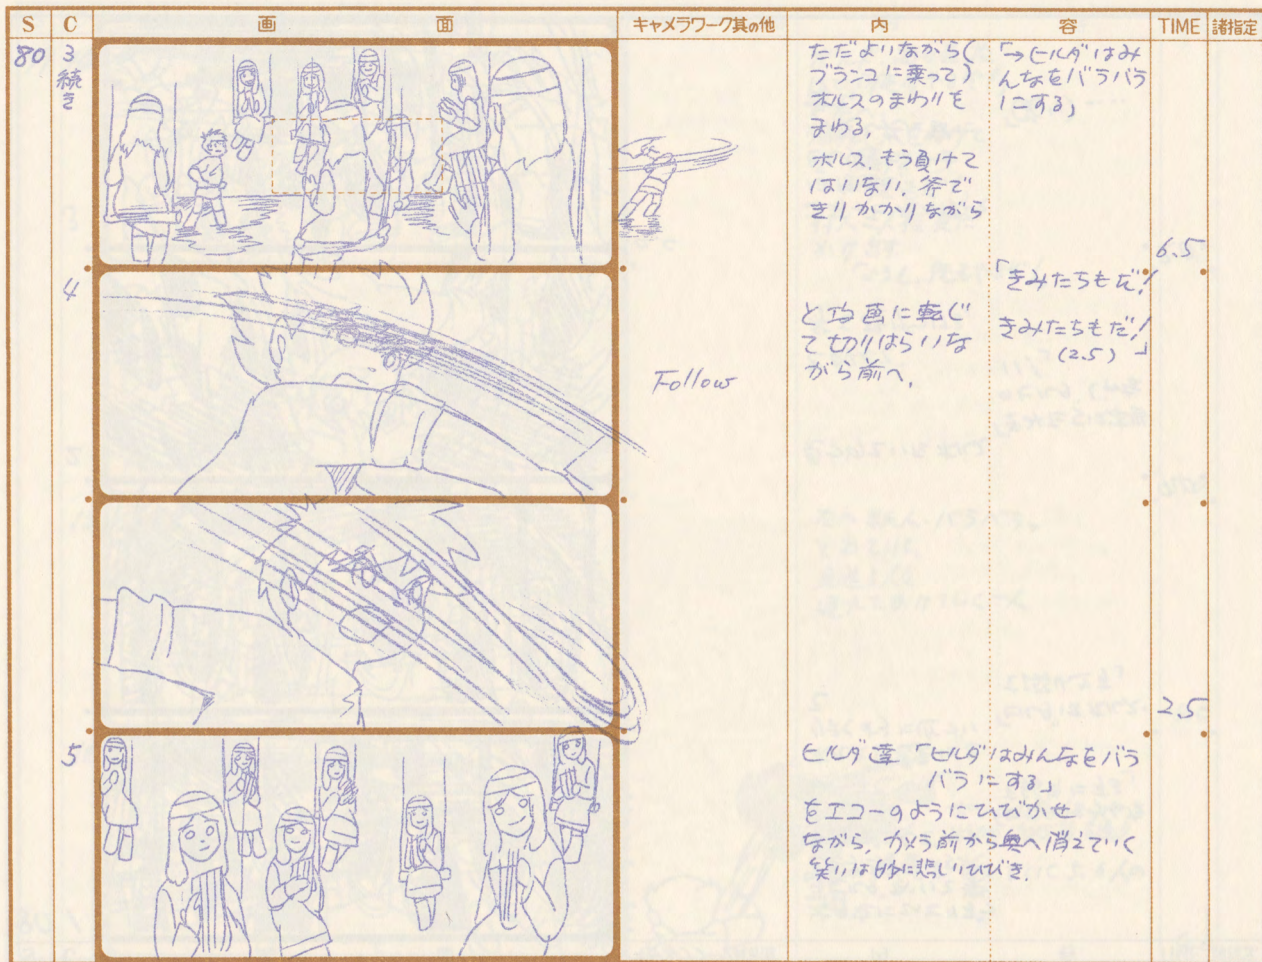 S C 画面 キャメラワーク其の他 内容 TIME 諸指定
80 3
続き
ただよいながら(
ブランコに乗って)
ホルスのまわりを
まわる。
ホルス、もう負けて
はいない。斧で
きりかかりながら
「→ヒルダはみ
んなをバラバラ
にする」
6.5
4
Follow
と
画に転じ
て切りはらいな
がら前へ。
「きみたちもだ!
きみたちもだ!」
(2.5)
2.5
5
ヒルダ達「ヒルダはみんなをバラ
バラにする」
をエコーのようにひびかせ
ながら、カメラ前から奥へ消えていく
笑いは
に悲しいひびき。